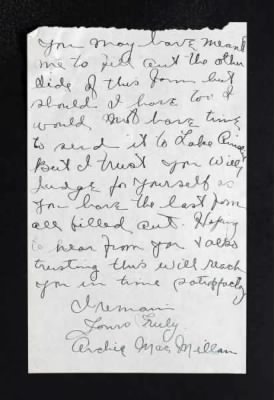 you may have meant
me to fill out the other
side of this form but
should I have too I
would not have time
to send it to Lake
But I trust you will
judge for yourself as
you have the last form
all filled out. Hoping
to hear from you &
trusting this will reach
you in time
I remain
Yours Truly
Archie Mac Millan